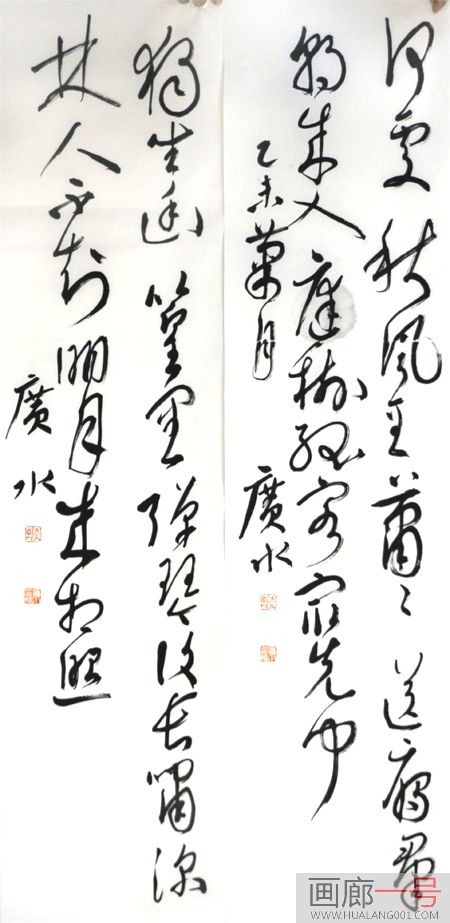 何處秋風至蕭〻送雁群
朝來入庭樹孤客最先聞
乙未 月
廣水
獨坐幽篁里彈琴復長嘯深
林人不知明月來相照
廣水
画廊一号
WWW.HUALANG001.COM